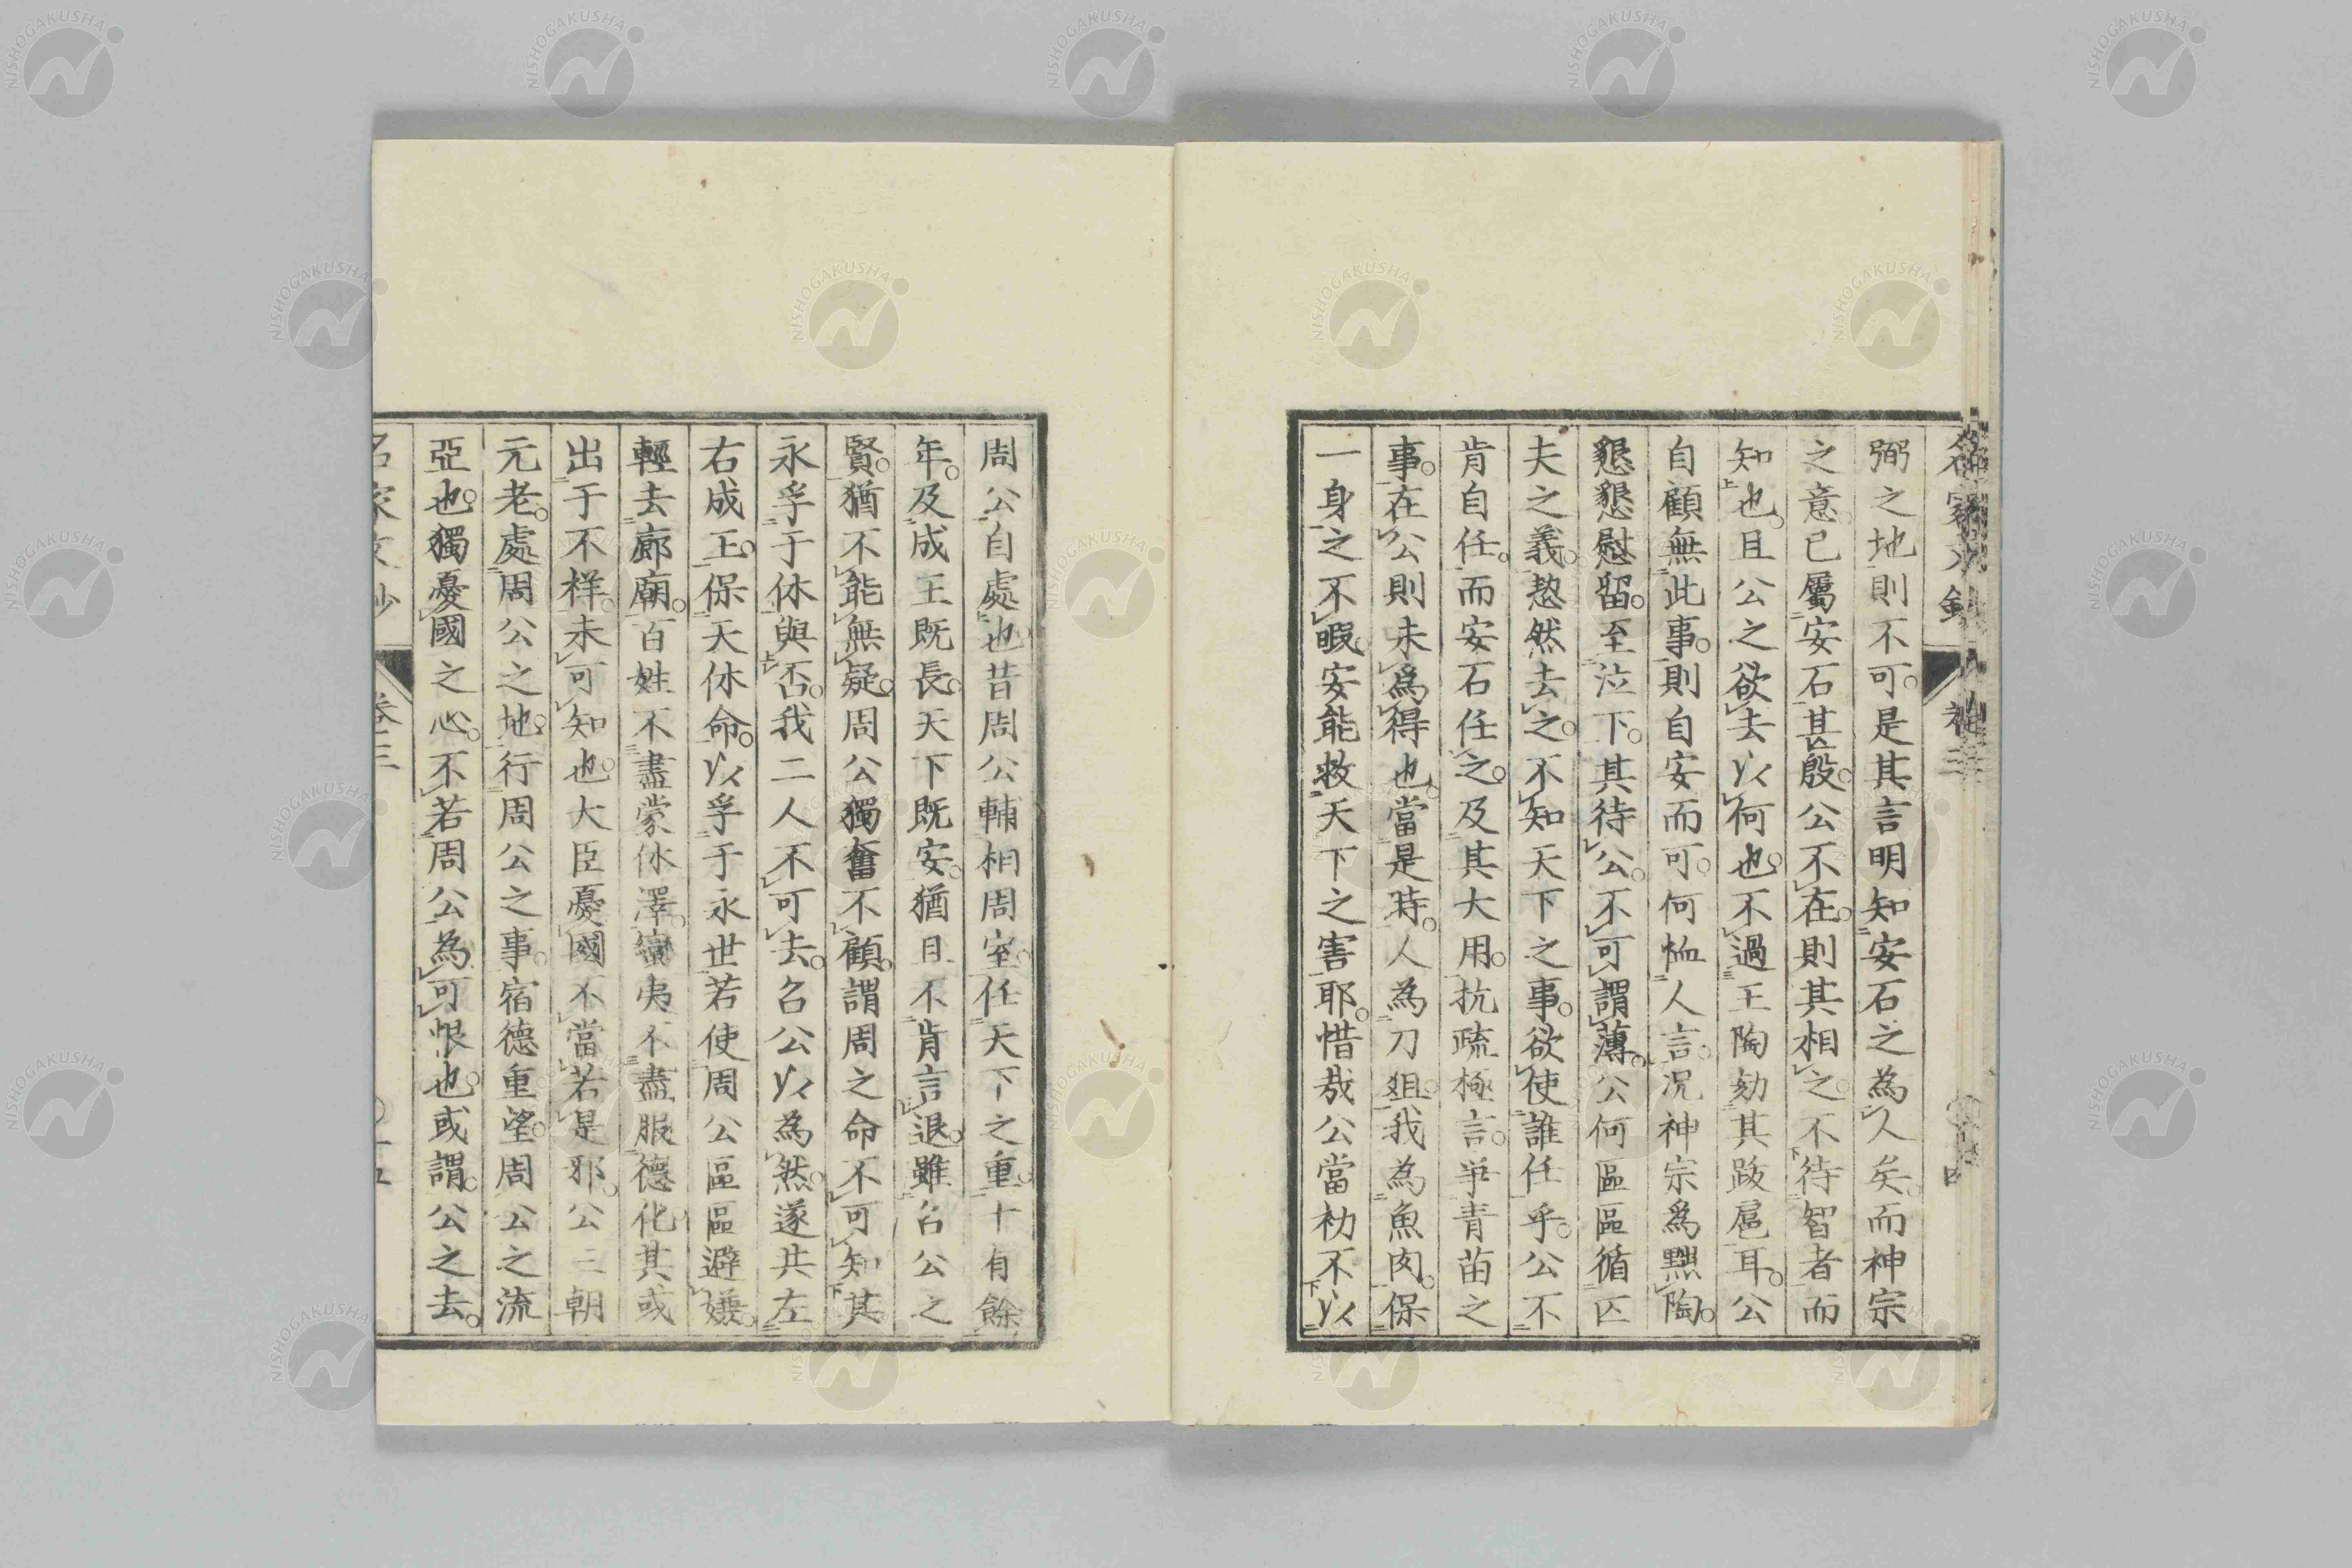 弼之地則不可。是其言明知安石之為人矣。而神宗
之意。已屬安石甚殷。公不在。則其相之。不待智者而
知也。且公之欲去以何也。不過王陶劾其跋扈耳。公
自顧無此事。則自安而可。何恤人言。況神宗為黜陶。
懇懇慰留。至泣下。其待公。不可謂薄。公何區區循匹
夫之義。愸然去之。不知天下之事。欲使誰任乎。公不
肯自任。而安石任之。及其大用。抗疏極言。爭青苗之
事。在公則未為得也。當是時。人為刀俎。我為魚肉。保
一身之不暇。安能救天下之害耶。惜哉公當初不以
周公自處也。昔周公輔相周室。任天下之重。十有餘
年。及成王既長。天下既安。猶且不肯言退。雖召公之
賢。猶不能無疑。周公獨奮不顧。謂周之命不可知其
永孚于休與否。我二人不可去。召公以為然。遂共左
右成王。保天休命。以孚于永世。若使周公區區避嫌。
輕去廊廟。百姓不盡蒙休澤。蠻夷不盡服德化。其或
出于不祥。未可知也。大臣憂國不當若是邪。公三朝
元老。處周公之地。行周公之事。宿德重望。周公之流
亞也。獨憂國之心。不若周公為可恨也。或謂。公之去。
名家文抄 卷三
NISHOGAKUSHA